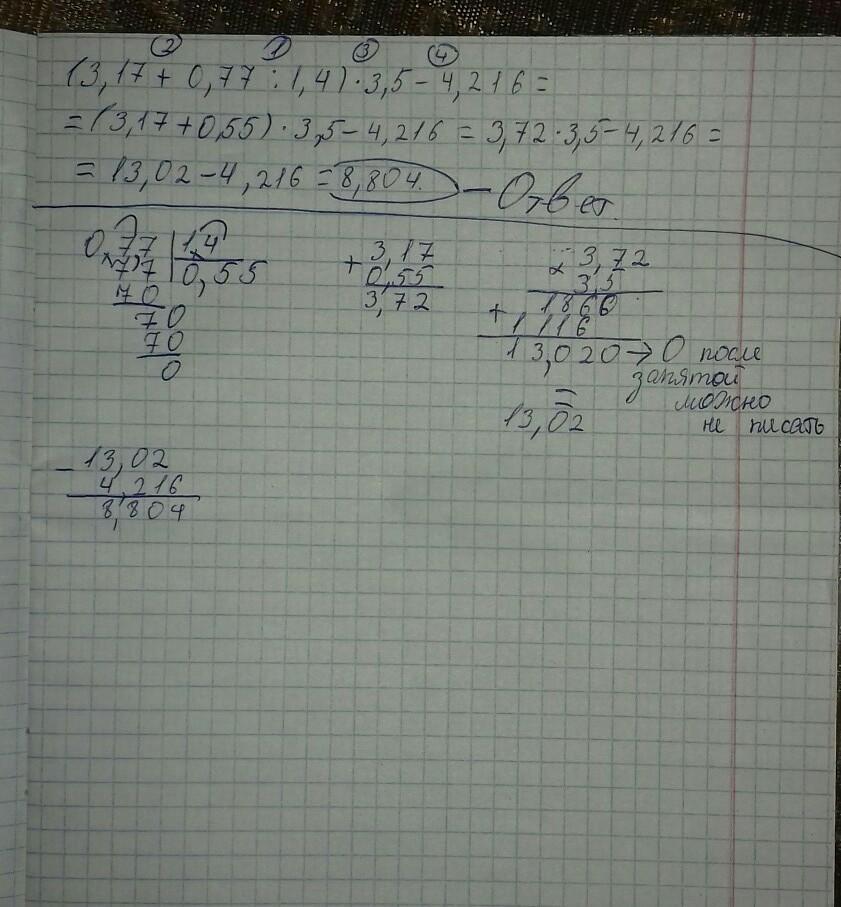 ② ① ③ ④
(3,17 + 0,77 : 1,4) · 3,5 - 4,216 =
= (3,17 + 0,55) · 3,5 - 4,216 = 3,72 · 3,5 - 4,216 =
= 13,02 - 4,216 = 8,804. - Ответ.
0,77 | 1,4
7,7 | 0,55
70
70
70
0
+ 3,17
0,55
3,72
× 3,72
3,5
1860
+ 1116
13,020 → 0 после
запятой
можно
не писать
=
13,02
- 13,02
4,216
8,804